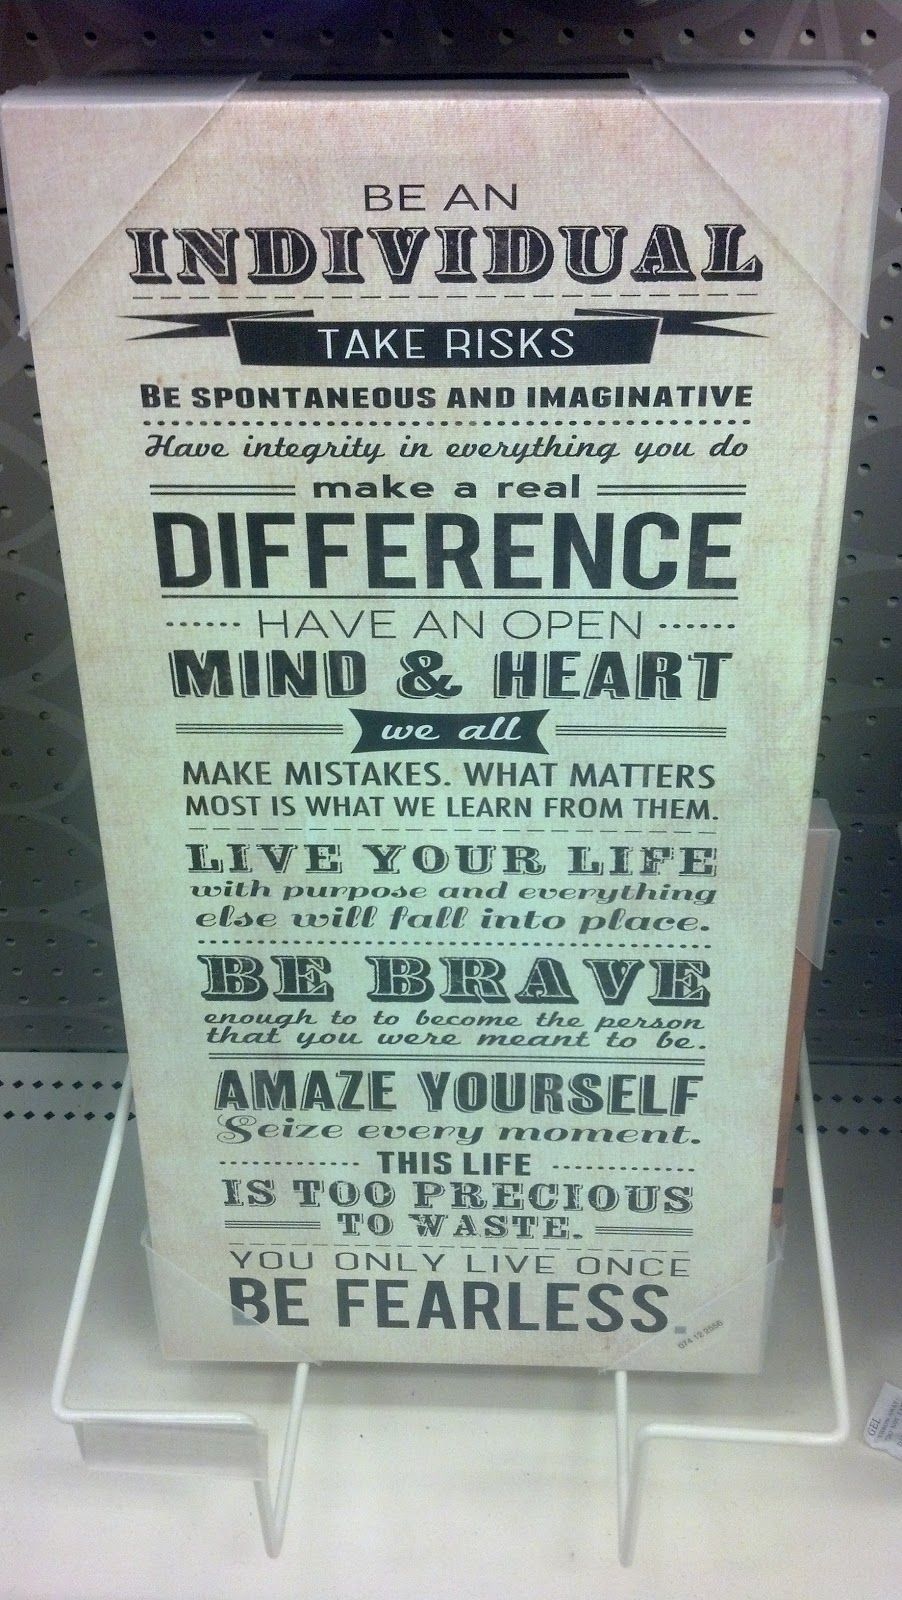 BE AN
INDIVIDUAL
TAKE RISKS
BE SPONTANEOUS AND IMAGINATIVE
Have integrity in everything you do
make a real
DIFFERENCE
HAVE AN OPEN
MIND & HEART
we all
MAKE MISTAKES. WHAT MATTERS
MOST IS WHAT WE LEARN FROM THEM.
LIVE YOUR LIFE
with purpose and everything
else will fall into place.
BE BRAVE
enough to to become the person
that you were meant to be.
AMAZE YOURSELF
Seize every moment.
THIS LIFE
IS TOO PRECIOUS
TO WASTE.
YOU ONLY LIVE ONCE
BE FEARLESS.
074 12 2566
GEL